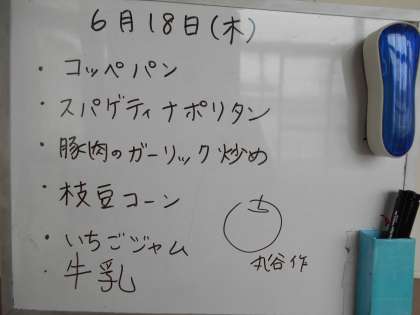 6月18日(木)
・コッペパン
・スパゲティナポリタン
・豚肉のガーリック炒め
・枝豆コーン
・いちごジャム
・牛乳
丸谷作